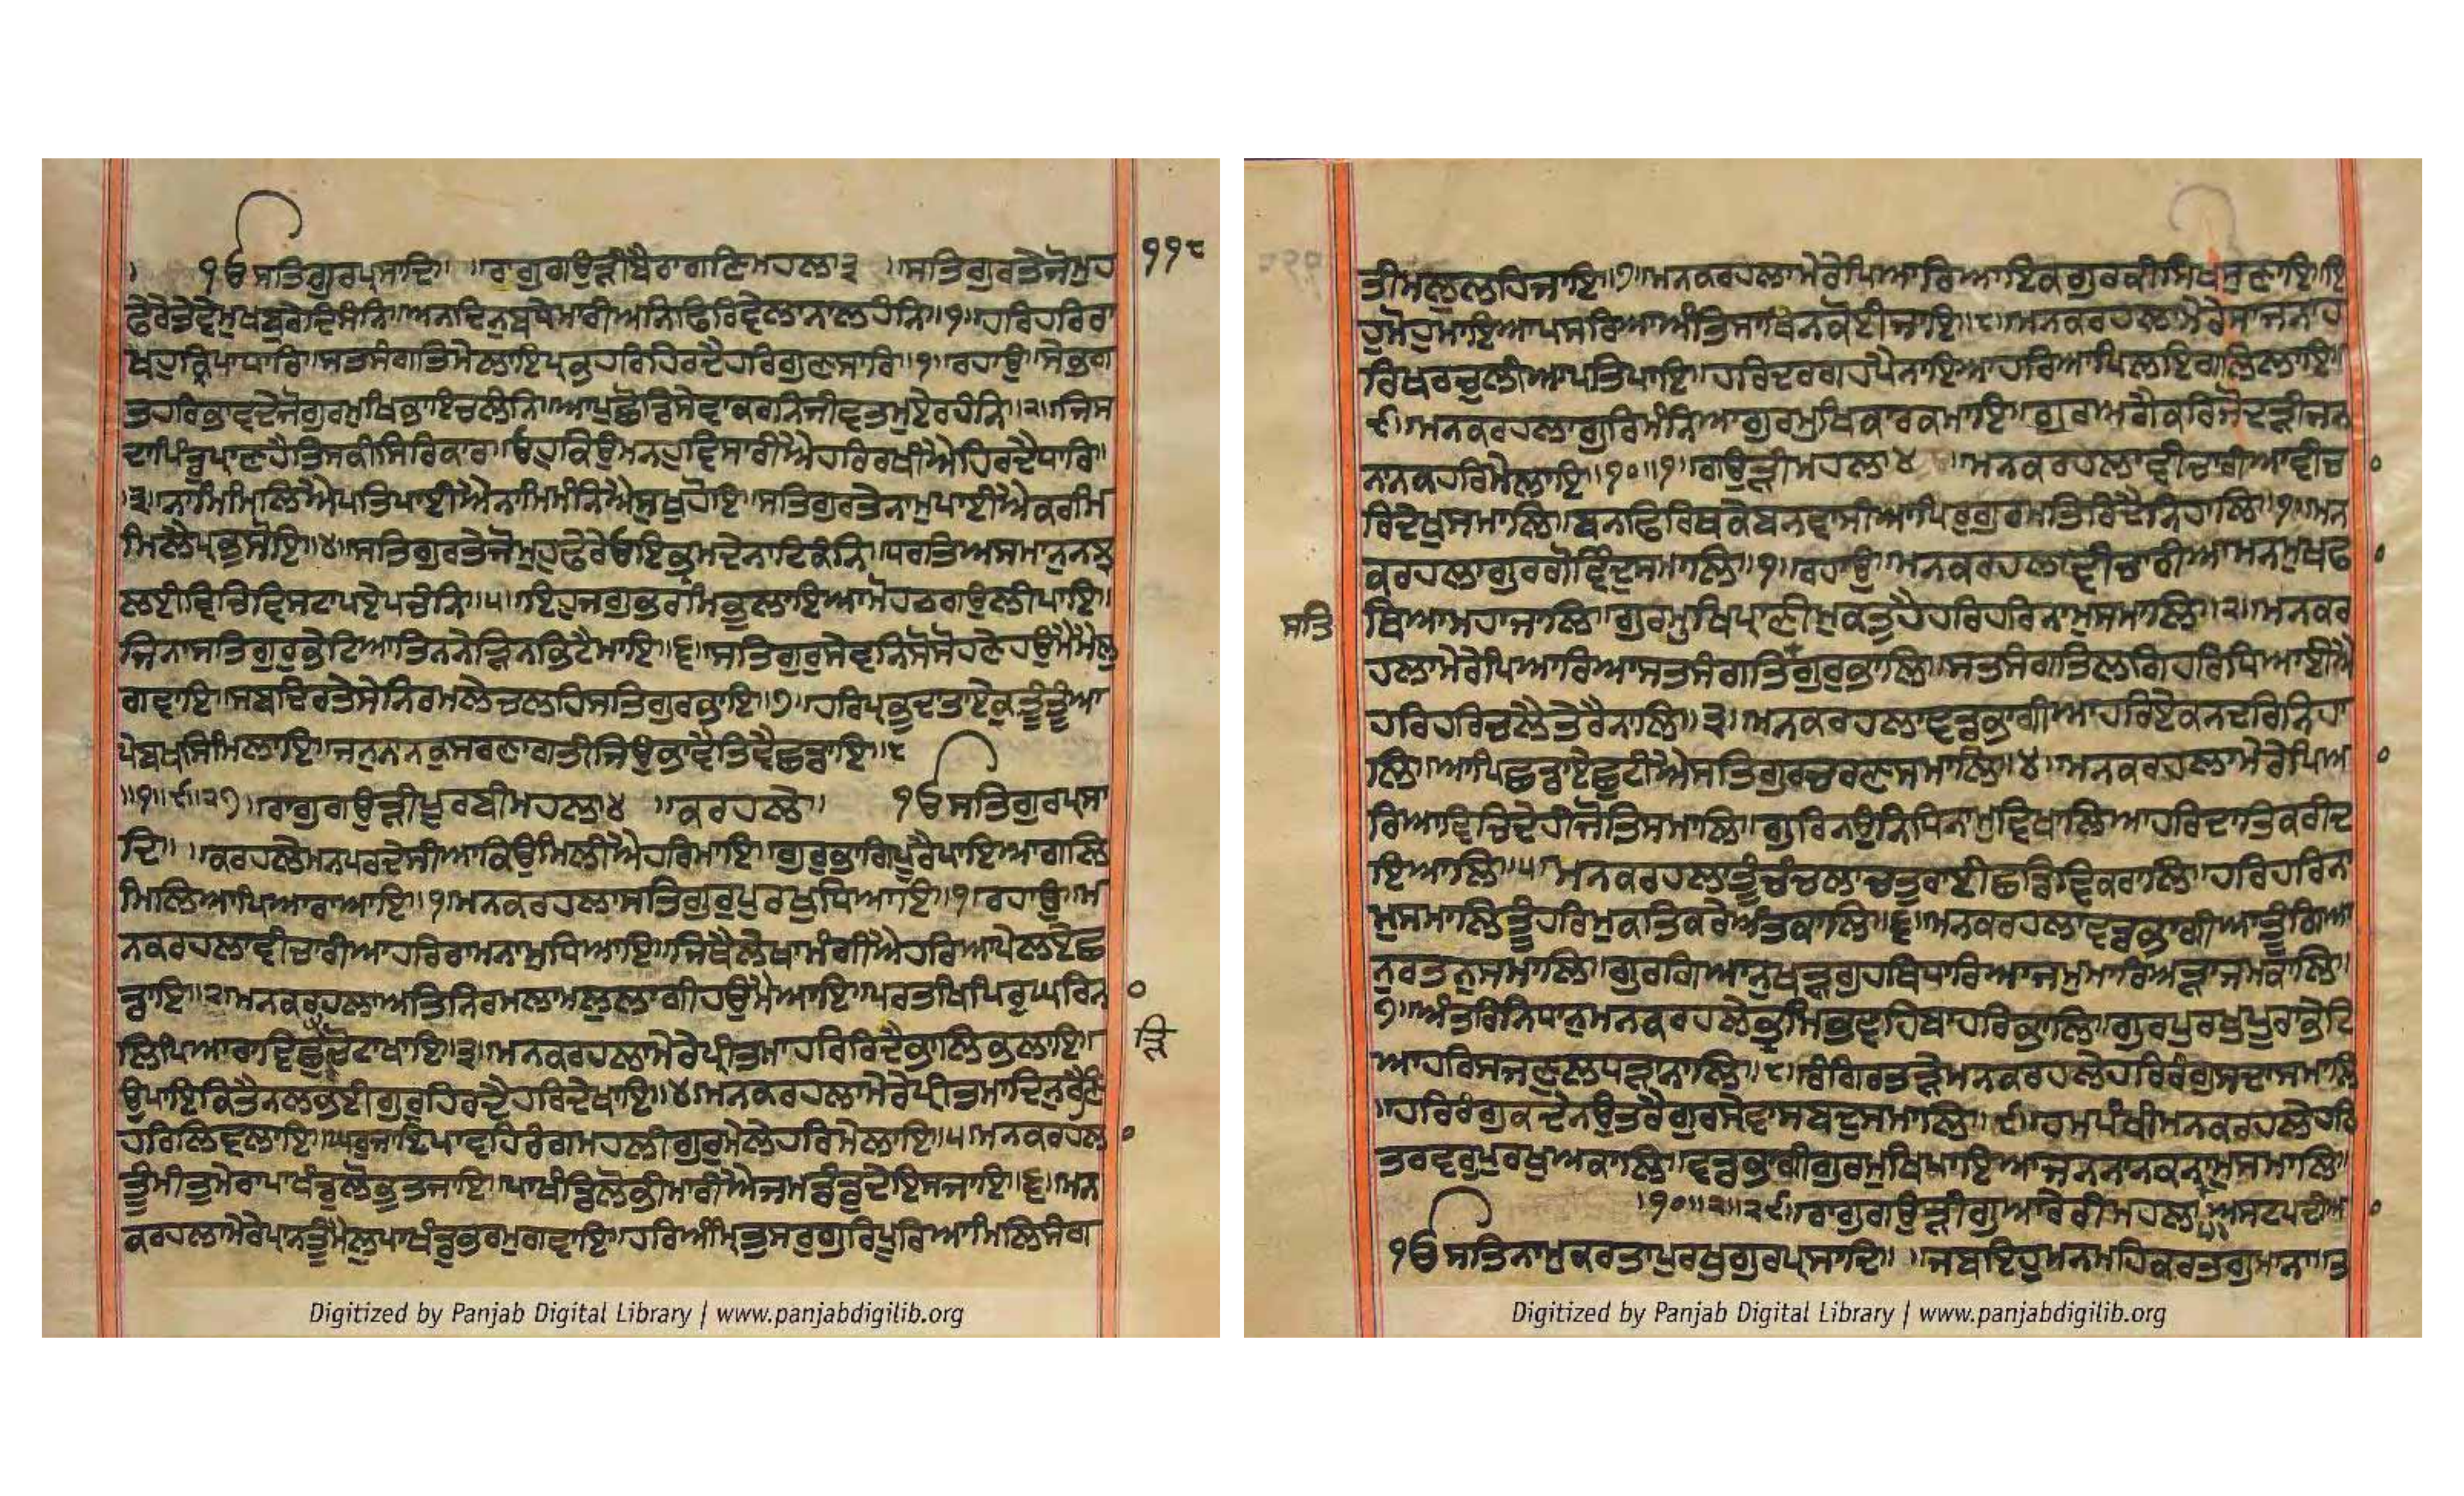 ੧ੴਸਤਿਗੁਰਪ੍ਰਸਾਦਿ॥ ॥ਰਾਗੁਗਉੜੀਬੈਰਾਗਣਿਮਹਲਾ੩ ॥ਸਤਿਗੁਰਤੇਜੋਮੁਹ
੧੧੮
ਫੇਰੇਤੇਵੇਮੁਖਬੁਰੇਦਿਸੰਨਿ॥ਅਨਦਿਨੁਬਧੇਮਾਰੀਅਨਿਫਿਰਿਵੇਲਾਨਾਲਹੰਨਿ॥੧॥ਹਰਿਹਰਿਰਾ
ਖਹੁਕ੍ਰਿਪਾਧਾਰਿ॥ਸਤਸੰਗਤਿਮੇਲਾਇਪ੍ਰਭਹਰਿਹਿਰਦੈਹਰਿਗੁਣਸਾਰਿ॥੧॥ਰਹਾਉ॥ਸੇਭਗ
ਤਹਰਿਭਾਵਦੇਜੋਗੁਰਮੁਖਿਭਾਇਚਲੰਨਿ॥ਆਪੁਛੋਡਿਸੇਵਾਕਰਨਿਜੀਵਤਮੁਏਰਹੰਨਿ॥੨॥ਜਿਸ
ਦਾਪਿੰਡੁਪਰਾਣਹੈਤਿਸਕੀਸਿਰਿਕਾਰ॥ਓਹੁਕਿਉਮਨਹੁਵਿਸਾਰੀਐਹਰਿਰਖੀਐਹਿਰਦੈਧਾਰਿ॥
੩॥ਨਾਮਿਮਿਲਿਐਪਤਿਪਾਈਐਨਾਮਿਮੰਨਿਐਸੁਖੁਹੋਇ॥ਸਤਿਗੁਰਤੇਨਾਮੁਪਾਈਐਕਰਮਿ
ਮਿਲੈਪ੍ਰਭੁਸੋਇ॥੪॥ਸਤਿਗੁਰਤੇਜੋਮੁਹੁਫੇਰੇਓਇਭ੍ਰਮਦੇਨਾਟਿਕੰਨਿ॥ਧਰਤਿਅਸਮਾਨੁਨਝ
ਲਈਵਿਚਿਵਿਸਟਾਪਏਪਚੰਨਿ॥੫॥ਇਹੁਜਗੁਭਰਮਿਭੁਲਾਇਆਮੋਹਠਗਉਲੀਪਾਇ॥
ਜਿਨਾਸਤਿਗੁਰੁਭੇਟਿਆਤਿਨਨੇੜਿਨਭਿਟੈਮਾਇ॥੬॥ਸਤਿਗੁਰੁਸੇਵਨਿਸੋਸੋਹਣੇਹਉਮੈਮੈਲੁ
ਗਵਾਇ॥ਸਬਦਿਰਤੇਸੇਨਿਰਮਲੇਚਲਹਿਸਤਿਗੁਰਭਾਇ॥੭॥ਹਰਿਪ੍ਰਭਦਾਤਾਏਕੁਤੂੰਤੂੰਆ
ਪੇਬਖਸਿਮਿਲਾਇ॥ਜਨੁਨਾਨਕੁਸਰਣਾਗਤੀਜਿਉਭਾਵੈਤਿਵੈਛਡਾਇ॥੮
॥੧॥੯॥੨੭॥ਰਾਗੁਗਉੜੀਪੂਰਬੀਮਹਲਾ੪ ॥ਕਰਹਲੇ॥ ੧ੴਸਤਿਗੁਰਪ੍ਰਸਾ
ਦਿ॥ ॥ਕਰਹਲੇਮਨਪਰਦੇਸੀਆਕਿਉਮਿਲੀਐਹਰਿਮਾਇ॥ਗੁਰੁਭਾਗਿਪੂਰੈਪਾਇਆਗਲਿ
ਮਿਲਿਆਪਿਆਰਾਆਇ॥੧॥ਮਨਕਰਹਲਾਸਤਿਗੁਰੁਪੁਰਖੁਧਿਆਇ॥੧॥ਰਹਾਉ॥ਮ
ਨਕਰਹਲਾਵੀਚਾਰੀਆਹਰਿਰਾਮਨਾਮਧਿਆਇ॥ਜਿਥੈਲੇਖਾਮੰਗੀਐਹਰਿਆਪੇਲਏਛ
ਡਾਇ॥੨॥ਮਨਕਰਹਲਾਅਤਿਨਿਰਮਲਾਮਲੁਲਾਗੀਹਉਮੈਆਇ॥ਪਰਤਖਿਪਿਰੁਘਰਿਨਾ
ਲਿਪਿਆਰਾਵਿਛੁੜਿਚੋਟਾਖਾਇ॥੩॥ਮਨਕਰਹਲਾਮੇਰੇਪ੍ਰੀਤਮਾਹਰਿਰਿਦੈਭਾਲਿਭਾਲਾਇ॥
ੜਿ
ਉਪਾਇਕਿਤੈਨਲਭਈਗੁਰੁਹਿਰਦੈਹਰਿਦੇਖਾਇ॥੪॥ਮਨਕਰਹਲਾਮੇਰੇਪ੍ਰੀਤਮਾਦਿਨੁਰੈਣਿ
ਹਰਿਲਿਵਲਾਇ॥ਘਰੁਜਾਇਪਾਵਹਿਰੰਗਮਹਲੀਗੁਰੁਮੇਲੇਹਰਿਮੇਲਾਇ॥੫॥ਮਨਕਰਹਲਾ
ਤੂੰਮੀਤੁਮੇਰਾਪਾਖੰਡੁਲੋਭੁਤਜਾਇ॥ਪਾਖੰਡਿਲੋਭੀਮਾਰੀਐਜਮਡੰਡੁਦੇਇਸਜਾਇ॥੬॥ਮਨ
ਕਰਹਲਾਮੇਰੇਪ੍ਰਾਨਤੂੰਮੈਲੁਪਾਖੰਡੁਭਰਮੁਗਵਾਇ॥ਹਰਿਅੰਮ੍ਰਿਤਸਰੁਗੁਰਿਪੂਰਿਆਮਿਲਿਸੰਗ
ਤੀਮਲੁਲਹਿਜਾਇ॥੭॥ਮਨਕਰਹਲਾਮੇਰੇਪਿਆਰਿਆਇਕਗੁਰਕੀਸਿਖਸੁਣਾਇ॥ਇ
ਹੁਮੋਹੁਮਾਇਆਪਸਰਿਆਅੰਤਿਸਾਥਿਨਕੋਈਜਾਇ॥੮॥ਮਨਕਰਹਲਾਮੇਰੇਸਾਜਨਾਹ
ਰਿਖਰਚੁਲੀਆਪਤਿਪਾਇ॥ਹਰਿਦਰਗਹਪੈਨਾਇਆਹਰਿਆਪਿਲਇਆਗਲਿਲਾਇ॥
੯॥ਮਨਕਰਹਲਾਗੁਰਿਮੰਨਿਆਗੁਰਮੁਖਿਕਾਰਕਮਾਇ॥ਗੁਰਆਗੈਕਰਿਜੋਦੜੀਜਨ
ਨਾਨਕਹਰਿਮੇਲਾਇ॥੧੦॥੧॥ਗਉੜੀਮਹਲਾ੪ ॥ਮਨਕਰਹਲਾਵੀਚਾਰੀਆਵੀਚਾ
ਰਿਦੇਖੁਸਮਾਲਿ॥ਬਨਫਿਰਿਥਕੇਬਨਵਾਸੀਆਪਿਰੁਗੁਰਮਤਿਰਿਦੈਨਿਹਾਲਿ॥੧॥ਮਨ
ਕਰਹਲਾਗੁਰਗੋਵਿੰਦੁਸਮਾਲਿ॥੧॥ਰਹਾਉ॥ਮਨਕਰਹਲਾਵੀਚਾਰੀਆਮਨਮੁਖਫਾ
ਥਿਆਮਹਾਜਾਲਿ॥ਗੁਰਮੁਖਿਪ੍ਰਾਣੀਮੁਕਤੁਹੈਹਰਿਹਰਿਨਾਮੁਸਮਾਲਿ॥੨॥ਮਨਕਰ
ਸਤਿ
ਹਲਾਮੇਰੇਪਿਆਰਿਆਸਤਸੰਗਤਿਗੁਰੁਭਾਲਿ॥ਸਤਸੰਗਤਿਲਗਿਹਰਿਧਿਆਈਐ
ਹਰਿਹਰਿਚਲੈਤੇਰੈਨਾਲਿ॥੩॥ਮਨਕਰਹਲਾਵਡਭਾਗੀਆਹਰਿਏਕਨਦਰਿਨਿਹਾ
ਲਿ॥ਆਪਿਛਡਾਏਛੁਟੀਐਸਤਿਗੁਰਚਰਣਸਮਾਲਿ॥੪॥ਮਨਕਰਹਲਾਮੇਰੇਪਿਆ
ਰਿਆਵਿਚਿਦੇਹੀਜੋਤਿਸਮਾਲਿ॥ਗੁਰਿਨਉਨਿਧਿਨਾਮੁਵਿਖਾਲਿਆਹਰਿਦਾਤਿਕਰੀਦ
ਇਆਲਿ॥੫॥ਮਨਕਰਹਲਾਤੂੰਚੰਚਲਾਚਤੁਰਾਈਛਡਿਵਿਕਰਾਲਿ॥ਹਰਿਹਰਿਨਾ
ਮੁਸਮਾਲਿਤੂੰਹਰਿਮੁਕਤਿਕਰੇਅੰਤਕਾਲਿ॥੬॥ਮਨਕਰਹਲਾਵਡਭਾਗੀਆਤੂੰਗਿਆ
ਨੁਰਤਨੁਸਮਾਲਿ॥ਗੁਰਗਿਆਨੁਖੜਗੁਹਥਿਧਾਰਿਆਜਮੁਮਾਰਿਅੜਾਜਮਕਾਲਿ॥
੭॥ਅੰਤਰਿਨਿਧਾਨੁਮਨਕਰਹਲੇਭ੍ਰਮਿਭਵਹਿਬਾਹਰਿਭਾਲਿ॥ਗੁਰਪੁਰਖੁਪੂਰਾਭੇਟਿ
ਆਹਰਿਸਜਣੁਲਧੜਾਨਾਲਿ॥੮॥ਰੰਗਿਰਤੜੇਮਨਕਰਹਲੇਹਰਿਰੰਗੁਸਦਾਸਮਾਲਿ
॥ਹਰਿਰੰਗੁਕਦੇਨਉਤਰੈਗੁਰਸੇਵਾਸਬਦੁਸਮਾਲਿ॥੯॥ਹਮਪੰਖੀਮਨਕਰਹਲੇਹਰਿ
ਤਰਵਰੁਪੁਰਖੁਅਕਾਲਿ॥ਵਡਭਾਗੀਗੁਰਮੁਖਿਪਾਇਆਜਨਨਾਨਕਨਾਮੁਸਮਾਲਿ॥
॥੧੦॥੨॥੨੯॥ਰਾਗੁਗਉੜੀਗੁਆਰੇਰੀਮਹਲਾ੫ਅਸਟਪਦੀਆ
੧ੴਸਤਿਨਾਮੁਕਰਤਾਪੁਰਖੁਗੁਰਪ੍ਰਸਾਦਿ॥ ॥ਜਬਇਹੁਮਨਮਹਿਕਰਤਗੁਮਾਨਾ॥ਤ
Digitized by Panjab Digital Library | www.panjabdigilib.org
Digitized by Panjab Digital Library | www.panjabdigilib.org